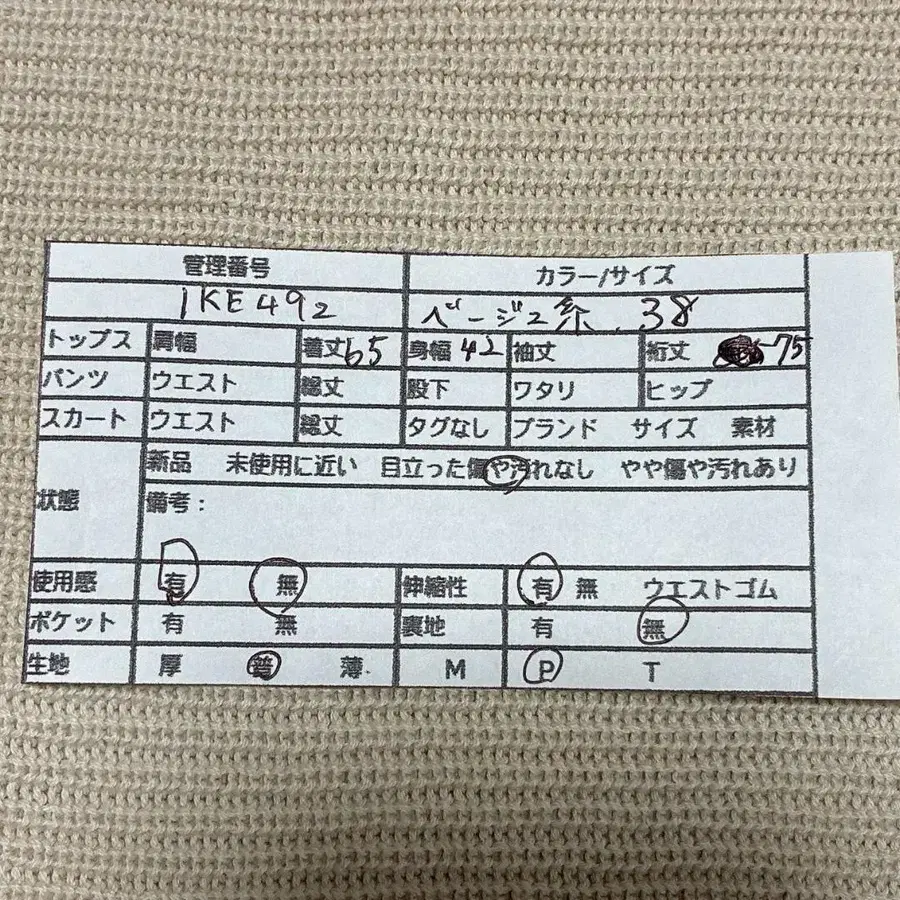 管理番号 カラー/サイズ
IKE492 ベージュ系.38
トップス 肩幅 着丈65 身幅42 袖丈 裄丈 75
パンツ ウエスト 総丈 股下 ワタリ ヒップ
スカート ウエスト 総丈 タグなし ブランド サイズ 素材
状態 新品 未使用に近い 目立った傷や汚れなし やや傷や汚れあり
備考:
使用感 有 無 伸縮性 有 無 ウエストゴム
ポケット 有 無 裏地 有 無
生地 厚 普 薄 M P T